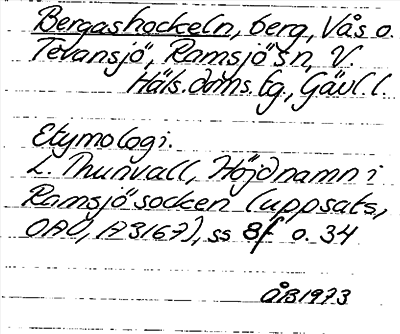 Bergashockeln, berg, Vås o.
Tevansjö, Ramsjö sn, V.
Häls. doms. tg., Gävl. l.
Etymologi.
L. Thunvall, Höjdnamn i
Ramsjö socken (uppsats,
OAU, A3167), ss 8f o. 34
ÅB1973